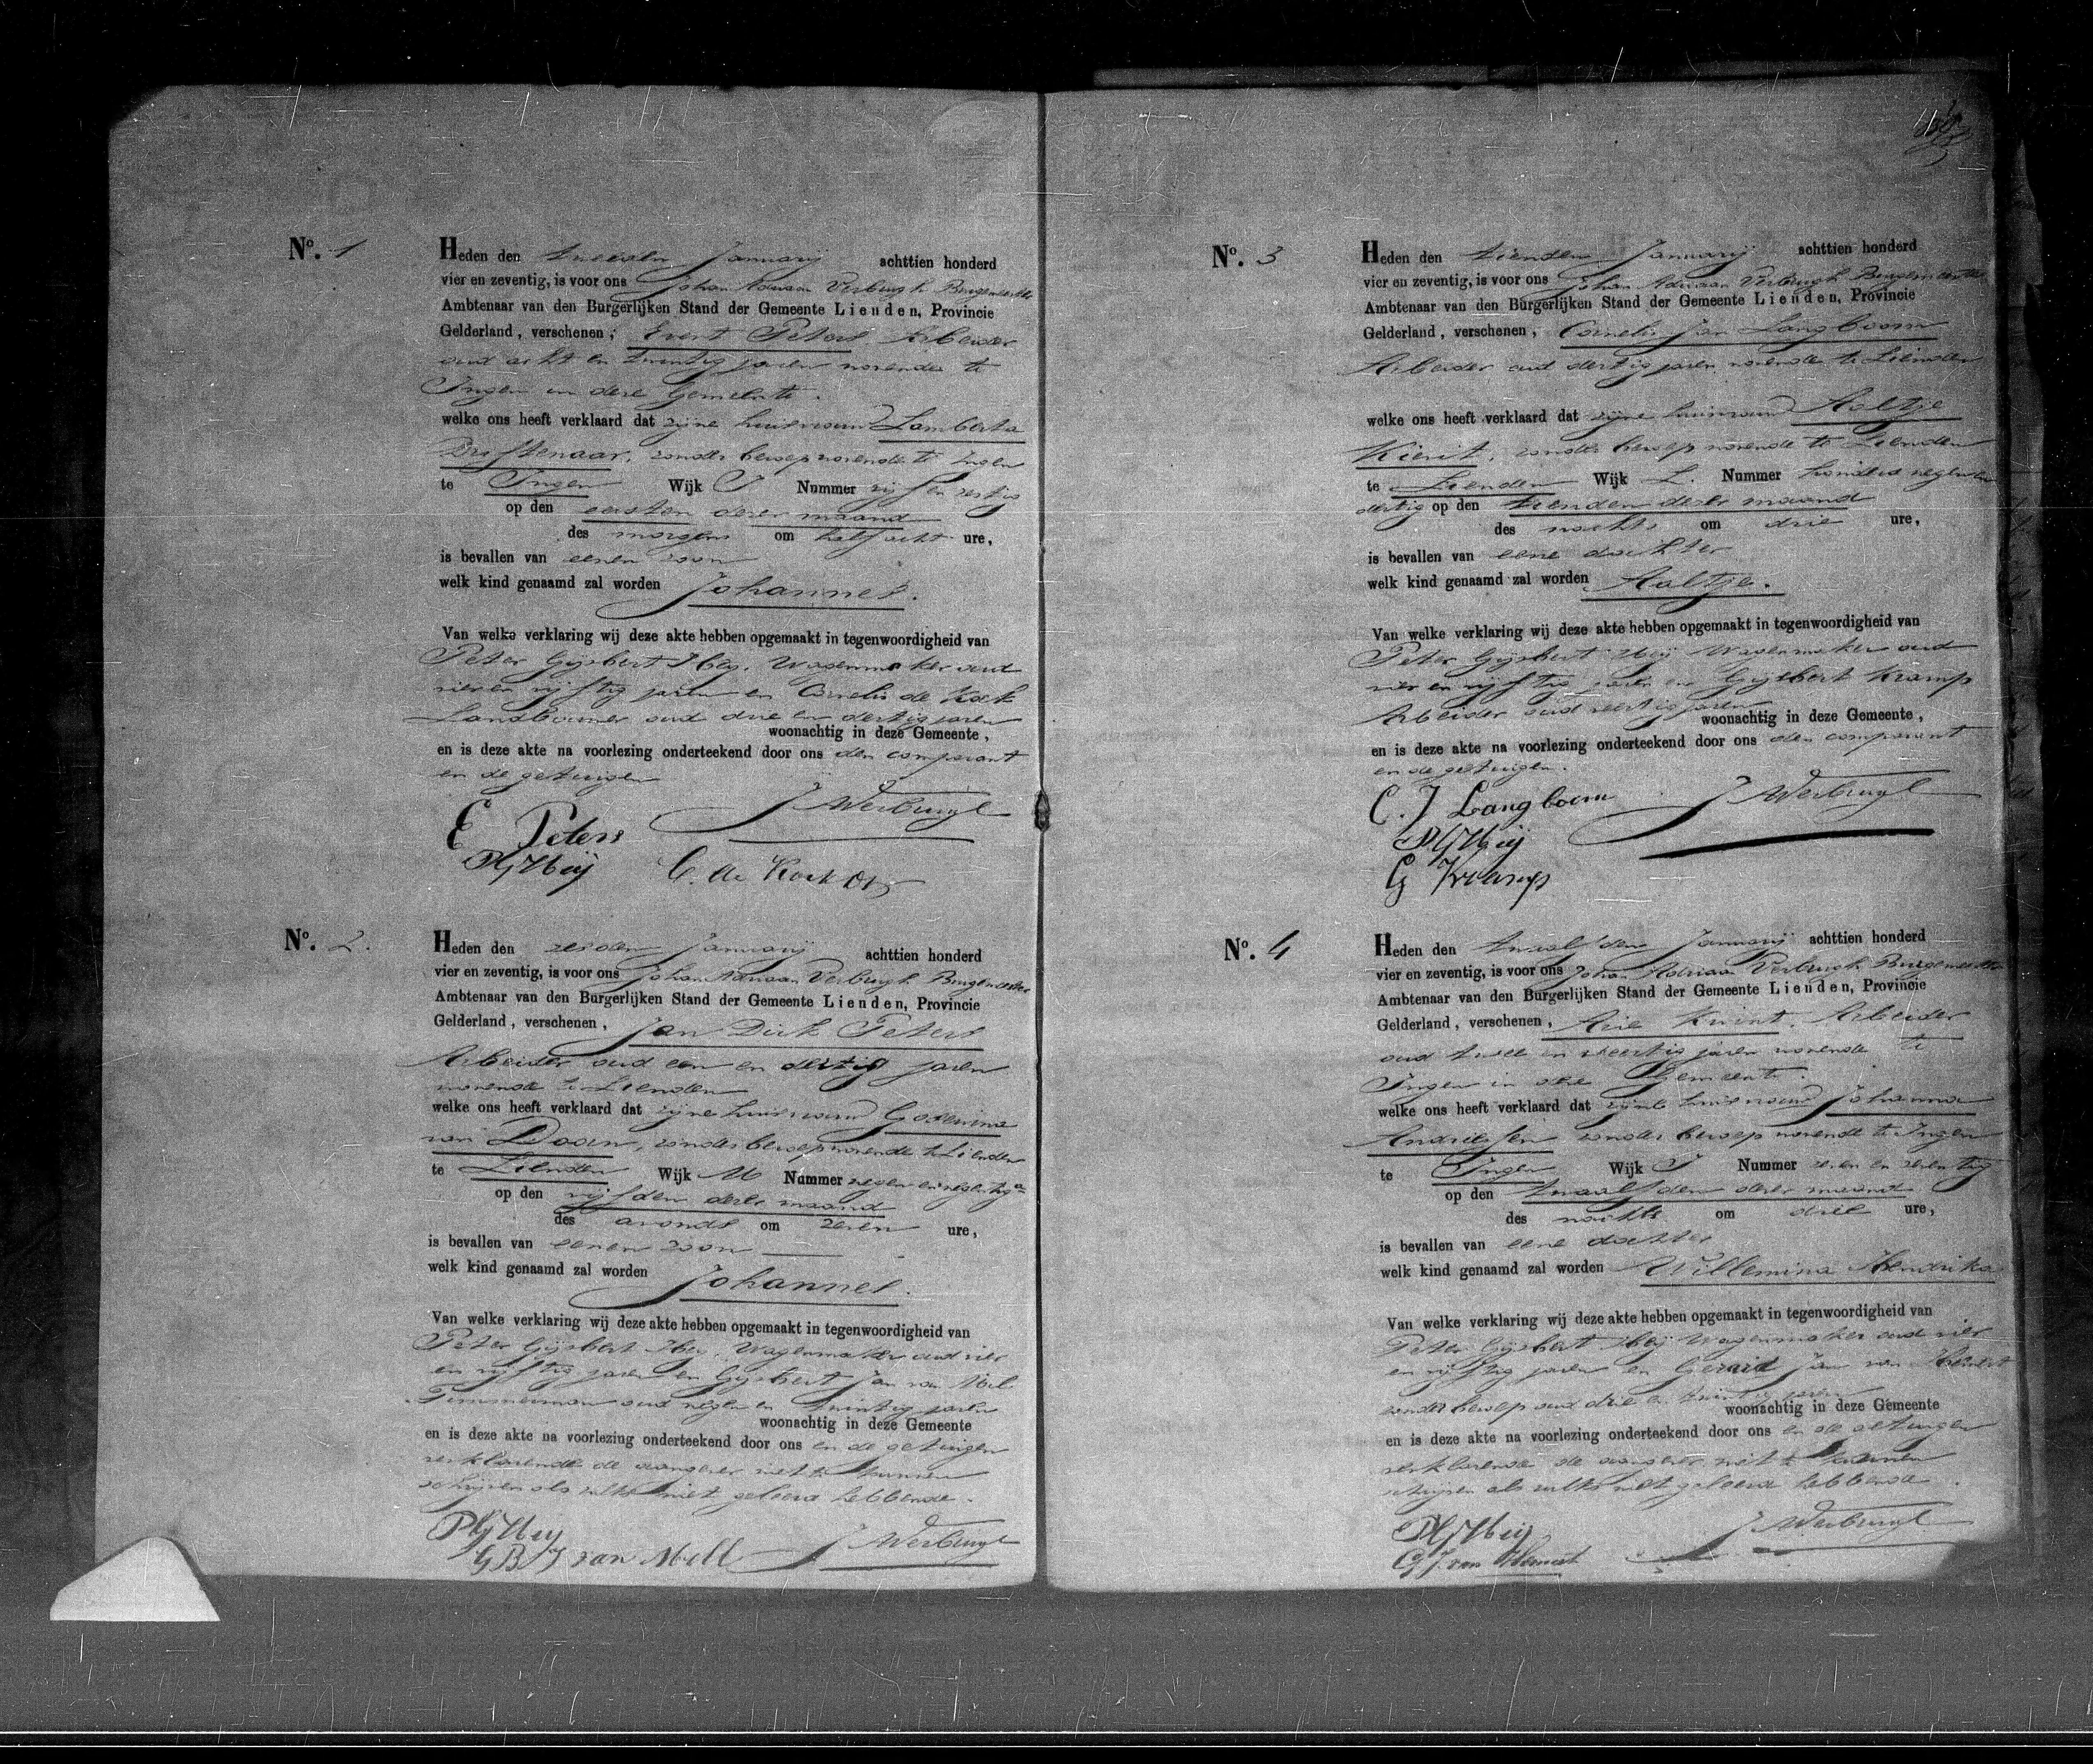 No. 1
Heden den tweeden Januarij achttien honderd
vier en zeventig, is voor ons Johan Adriaan Verbrugh Burgemeester
Ambtenaar van den Burgerlijken Stand der Gemeente Lienden, Provincie
Gelderland, verschenen, Evert Peters Arbeider
oud acht en twintig jaren wonende te
Ingen in deze Gemeente.
welke ons heeft verklaard dat zijne huisvrouw Lamberta
Driftenaar, zonder beroep wonende te Ingen
te Ingen Wijk J Nummer vijf en zestig
op den eersten dezer maand
des morgens om half acht ure,
is bevallen van eenen zoon
welk kind genaamd zal worden Johannes.
Van welke verklaring wij deze akte hebben opgemaakt in tegenwoordigheid van
Peter Gijsbert Heij, Wagenmaker oud
vier en vijftig jaren en Cornelis de Kock
Landbouwer oud drie en dertig jaren
woonachtig in deze Gemeente,
en is deze akte na voorlezing onderteekend door ons den comparant
en de getuigen
E Peters JAVerbrugh
PGHeij C. de Kock
No. 2.
Heden den zesden Januarij achttien honderd
vier en zeventig, is voor ons Johan Adriaan Verbrugh Burgemeester
Ambtenaar van den Burgerlijken Stand der Gemeente Lienden, Provincie
Gelderland, verschenen, Jan Dirk Peters
Arbeider oud een en dertig jaren
wonende te Lienden
welke ons heeft verklaard dat zijne huisvrouw Goverina
van Dooren, zonder beroep wonende te Lienden
te Lienden Wijk M Nummer negen en negentig a
op den vijfden dezer maand
des avonds om zeven ure,
is bevallen van eenen zoon
welk kind genaamd zal worden Johannes.
Van welke verklaring wij deze akte hebben opgemaakt in tegenwoordigheid van
Peter Gijsbert Heij, Wagenmaker oud vier
en vijftig jaren en Gijsbert Jan van Mil
Timmerman oud negen en twintig jaren
woonachtig in deze Gemeente
en is deze akte na voorlezing onderteekend door ons en de getuigen
verklarende de aangever niet te kunnen
schrijven als zulks niet geleerd hebbende.
PGHeij
GBJ van Mill JAVerbrugh
No. 3
Heden den tienden Januarij achttien honderd
vier en zeventig, is voor ons Johan Adriaan Verbrugh Burgemeester
Ambtenaar van den Burgerlijken Stand der Gemeente Lienden, Provincie
Gelderland, verschenen, Cornelis Jan Langboom
Arbeider oud dertig jaren wonende te Lienden
welke ons heeft verklaard dat zijne huisvrouw Aaltje
Kievit, zonder beroep wonende te Lienden
te Lienden Wijk L. Nummer honderd negen en
dertig op den tienden dezer maand
des nachts om drie ure,
is bevallen van eene dochter
welk kind genaamd zal worden Aaltje.
Van welke verklaring wij deze akte hebben opgemaakt in tegenwoordigheid van
Peter Gijsbert Heij Wagenmaker oud
vier en vijftig jaren en Gijsbert Kramp
Arbeider oud veertig jaren
woonachtig in deze Gemeente,
en is deze akte na voorlezing onderteekend door ons den comparant
en de getuigen.
C. J Langboom JAVerbrugh
PGHeij
G Kramp
No. 4
Heden den twaalfden Januarij achttien honderd
vier en zeventig, is voor ons Johan Adriaan Verbrugh Burgemeester
Ambtenaar van den Burgerlijken Stand der Gemeente Lienden, Provincie
Gelderland, verschenen, Arie Kwint, Arbeider
oud twee en veertig jaren wonende te
Ingen in deze Gemeente.
welke ons heeft verklaard dat zijne huisvrouw Johanna
Andriessen zonder beroep wonende te Ingen
te Ingen Wijk J Nummer zeven en zeventig
op den twaalfden dezer maand
des nachts om drie ure,
is bevallen van eene dochter
welk kind genaamd zal worden Willemina Hendrika
Van welke verklaring wij deze akte hebben opgemaakt in tegenwoordigheid van
Peter Gijsbert Heij Wagenmaker oud vier
en vijftig jaren en Gerard Jan van Hemert
zonder beroep oud drie en twintig jaren
woonachtig in deze Gemeente
en is deze akte na voorlezing onderteekend door ons en de getuigen
verklarende de aangever niet te kunnen
schrijven als zulks niet geleerd hebbende.
PGHeij JAVerbrugh
GJ. van Hemert